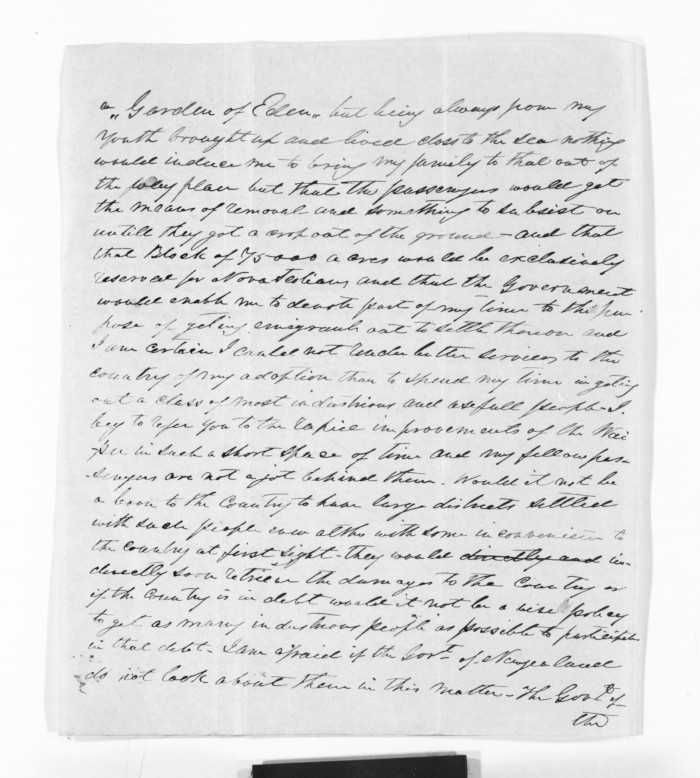 a „Garden of Eden„ but being always from my
Youth brought up and lived close to the sea nothing
would induce me to bring my family to that out of
the way place but that the passengers would get
the means of removal and something to subsist on
untill they got a crop out of the ground – and that
that Block of 75000 acres would be exclusively
reserved for Nova Scotians and that the Government
would enable me to devote part of my time to the pur
pose of geting emigrants out to settle thereon and
I am certain I could not render better services to the
country of my adoption than to spend my time in geting
out a class of most industrious and usefull people – I
beg to refer you to the rapid improvements of the Wai
pu in such a short space of time and my fellow pas-
sengers are not a jot behind them. Would it not be
a boon to the Country to have large districts settled
with such people even altho with some inconvenience to
the country at first sight – they would directly and in-
directly soon retrieve the damages to the Country or
if the country is in debt would it not be a wise policy
to get as many industrous people as possible to participate
in that debt – I am afraid if the Govt. of
do not look about them in this matter – the Govt. of
the